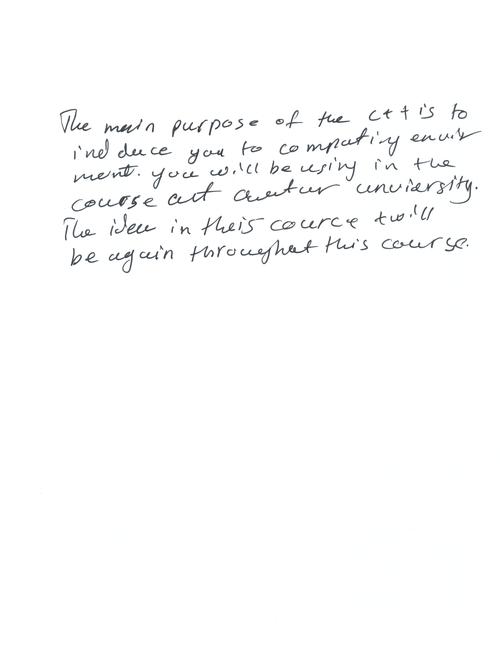 The main purpose of the C++ is to
induce you to computing envir
ment. you will be using in the
course at unviersity.
The idea in theis cource twill
be again throughat this course.